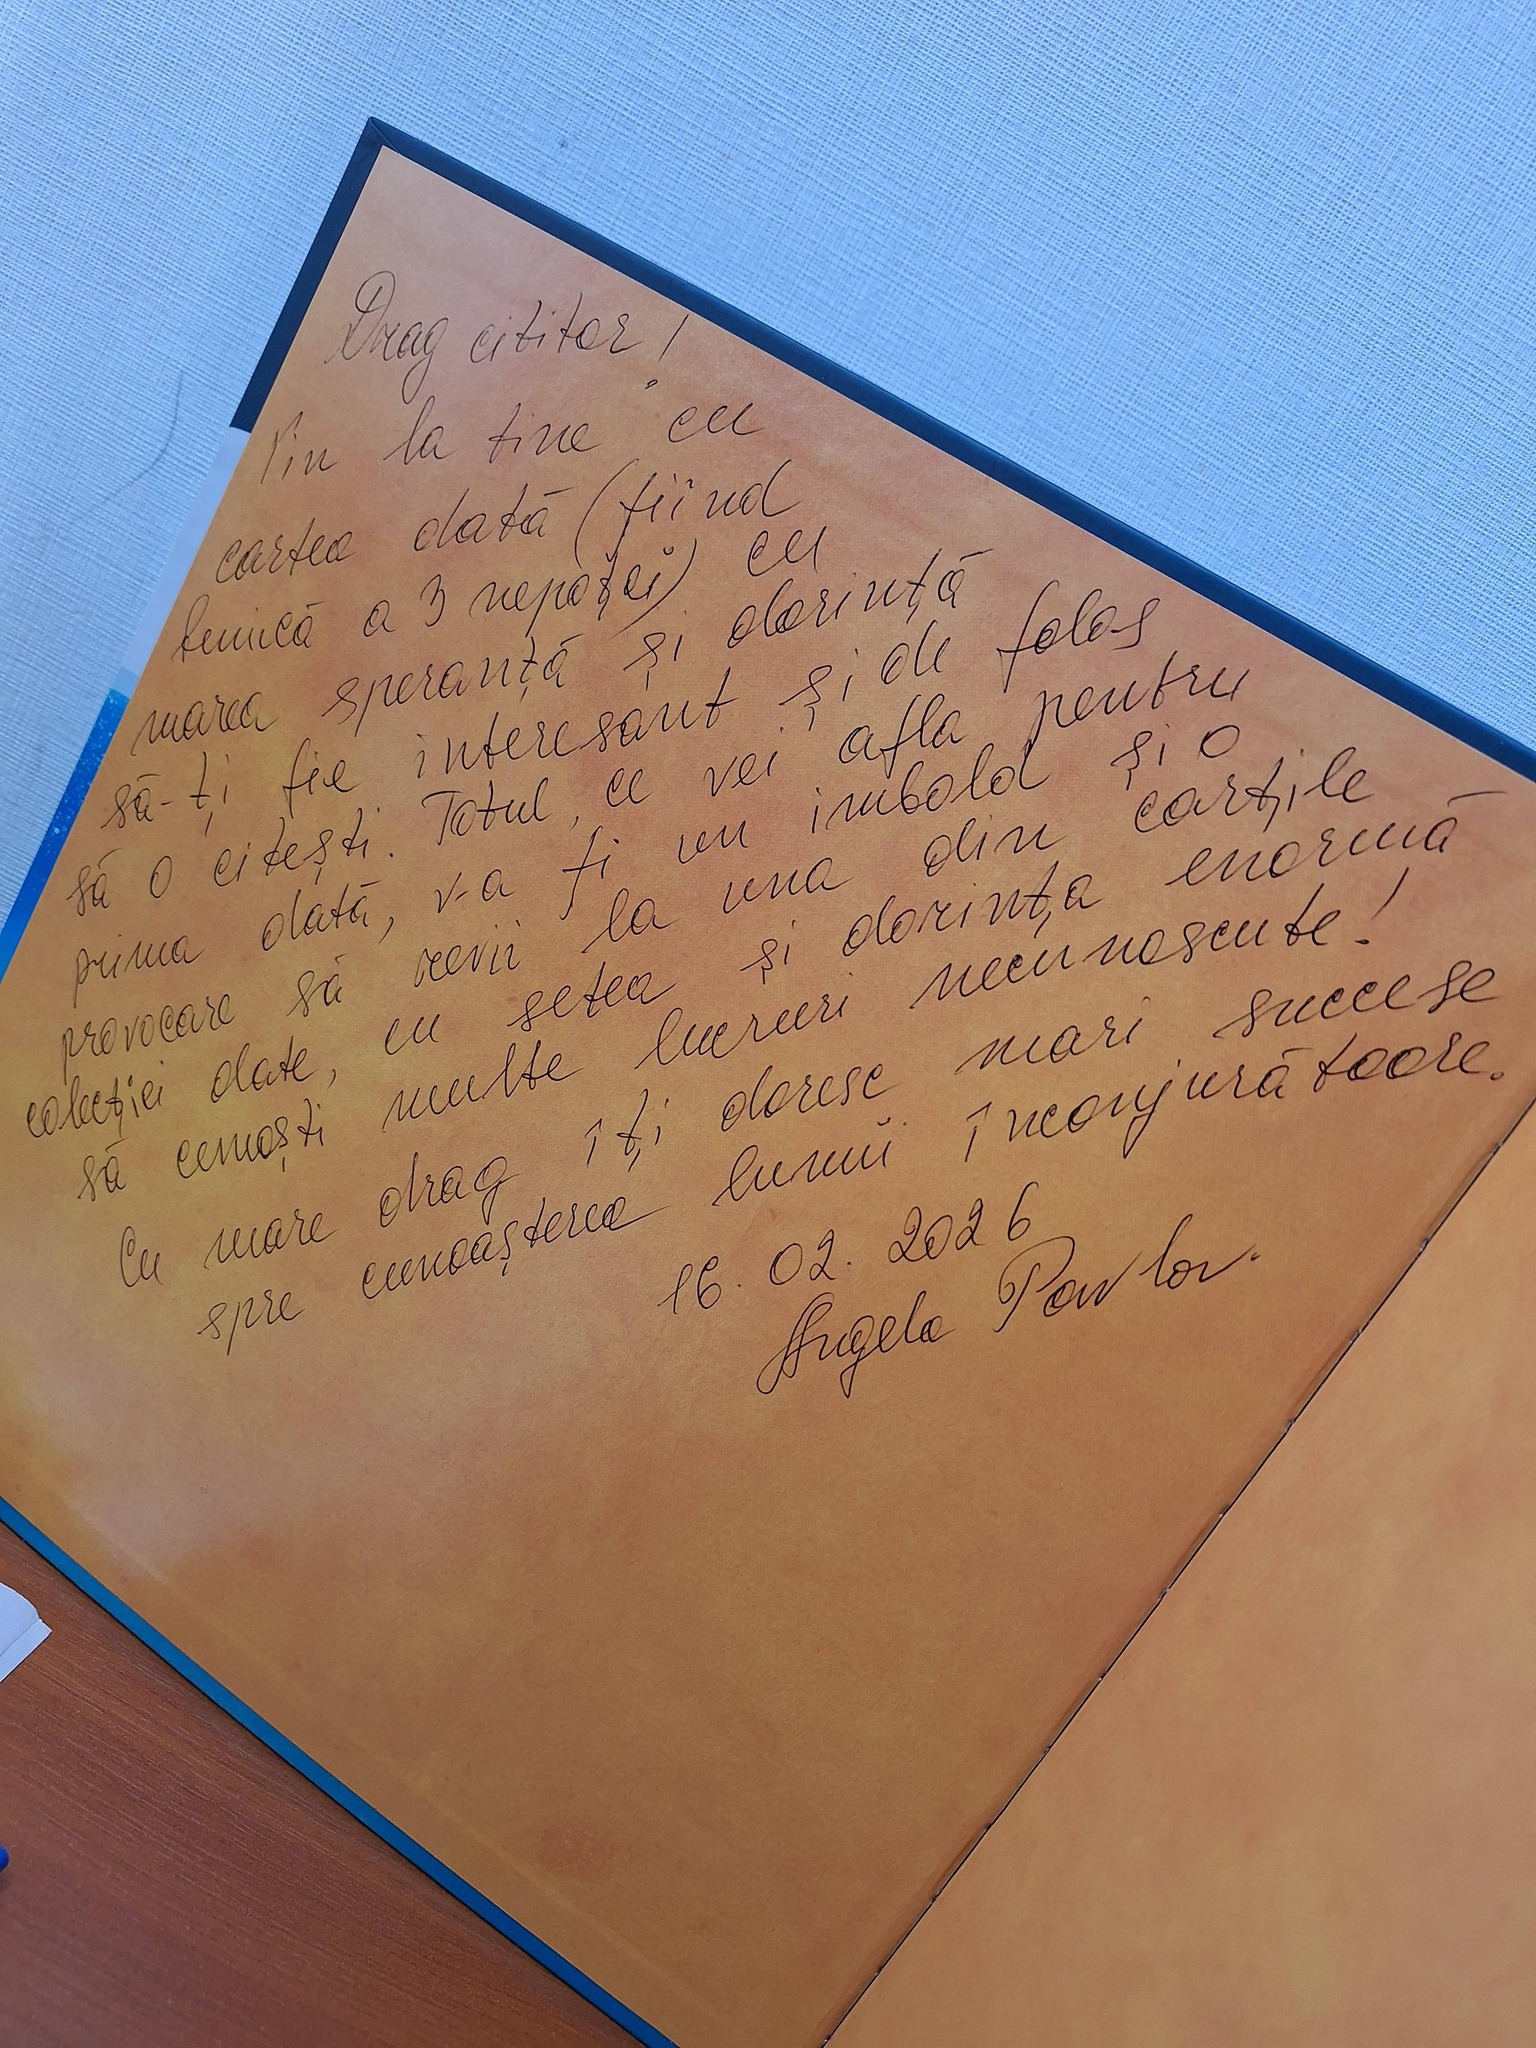 Drag cititor!
Vin la tine cu
cartea dată (fiind
bunică a 3 nepoței) cu
marea speranță și dorință
să-ți fie interesant și de folos
să o citești. Totul, ce vei afla pentru
prima dată, v-a fi un imbold și o
provocare să revii la una din cărțile
colecției date, cu setea și dorința enormă
să cunoști multe lucruri necunoscute!
Cu mare drag îți doresc mari succese
spre cunoașterea lumii înconjurătoare.
16.02.2026
Angela Pavlov.